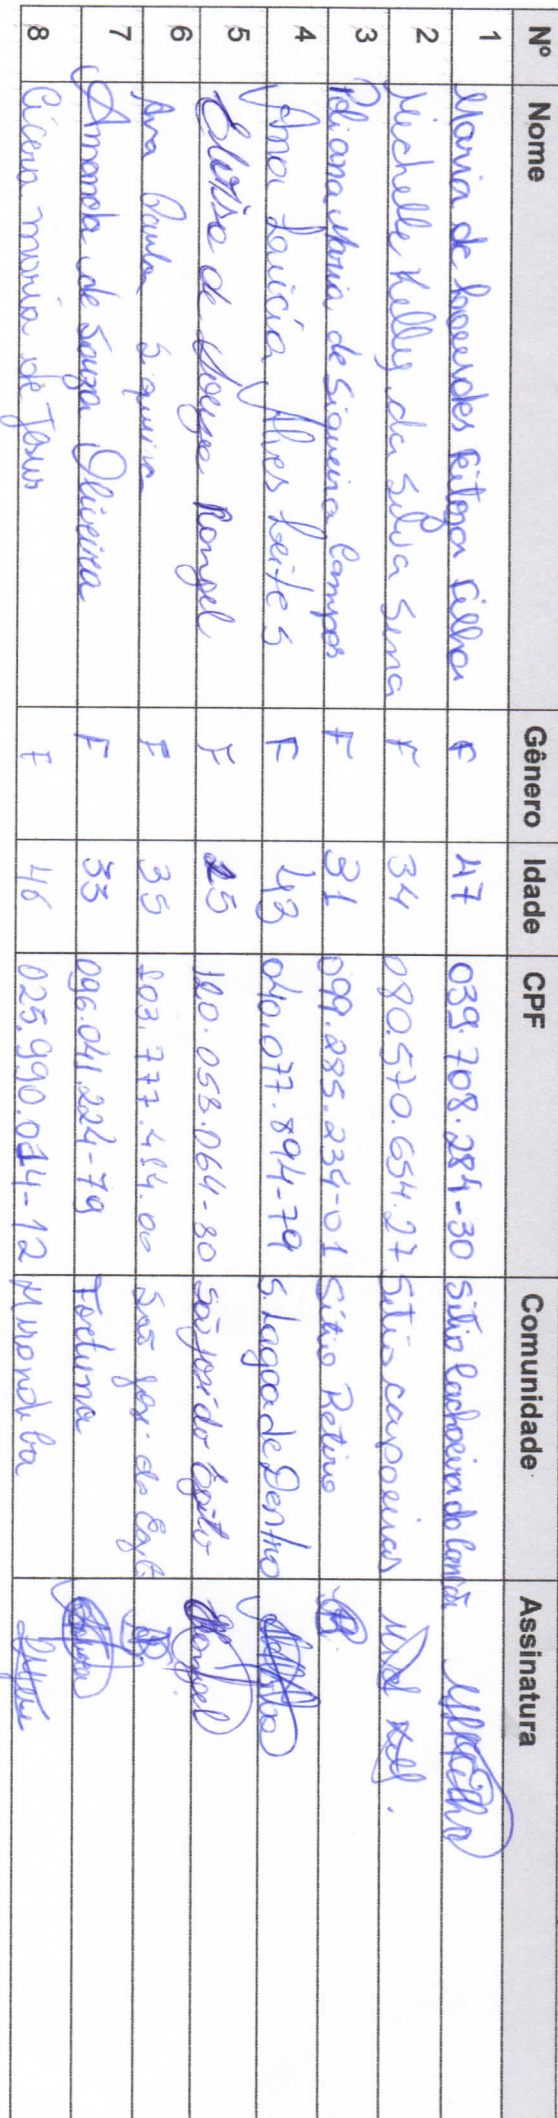 Nº Nome Gênero Idade CPF Comunidade Assinatura
1 Maria de Lourdes Feitosa Filha F 47 039.708.284-30 Sitio Cachoeira do
2 Michelle Kelly da Silva Sena F 34 080.570.654.27 Sitio capoeiras
3 Poliana Maria de Siqueira Campos F 31 099.285.234-01 Sitio Retiro
4 Ana Laúcia Alves Leites F 43 040.077.894-79 S. Lagoa de Dentro
5 de Rangel F 25 120.053.064-80 São josé do Egito
6 Ana Paula Siqueira F 35 103.777.414.00 São jose do Egito
7 Amanda de Souza Oliveira F 33 096.041.224-79 Fortuna
8 Cicera maria de Jesus F 46 025.990.014-12 Mirandiba